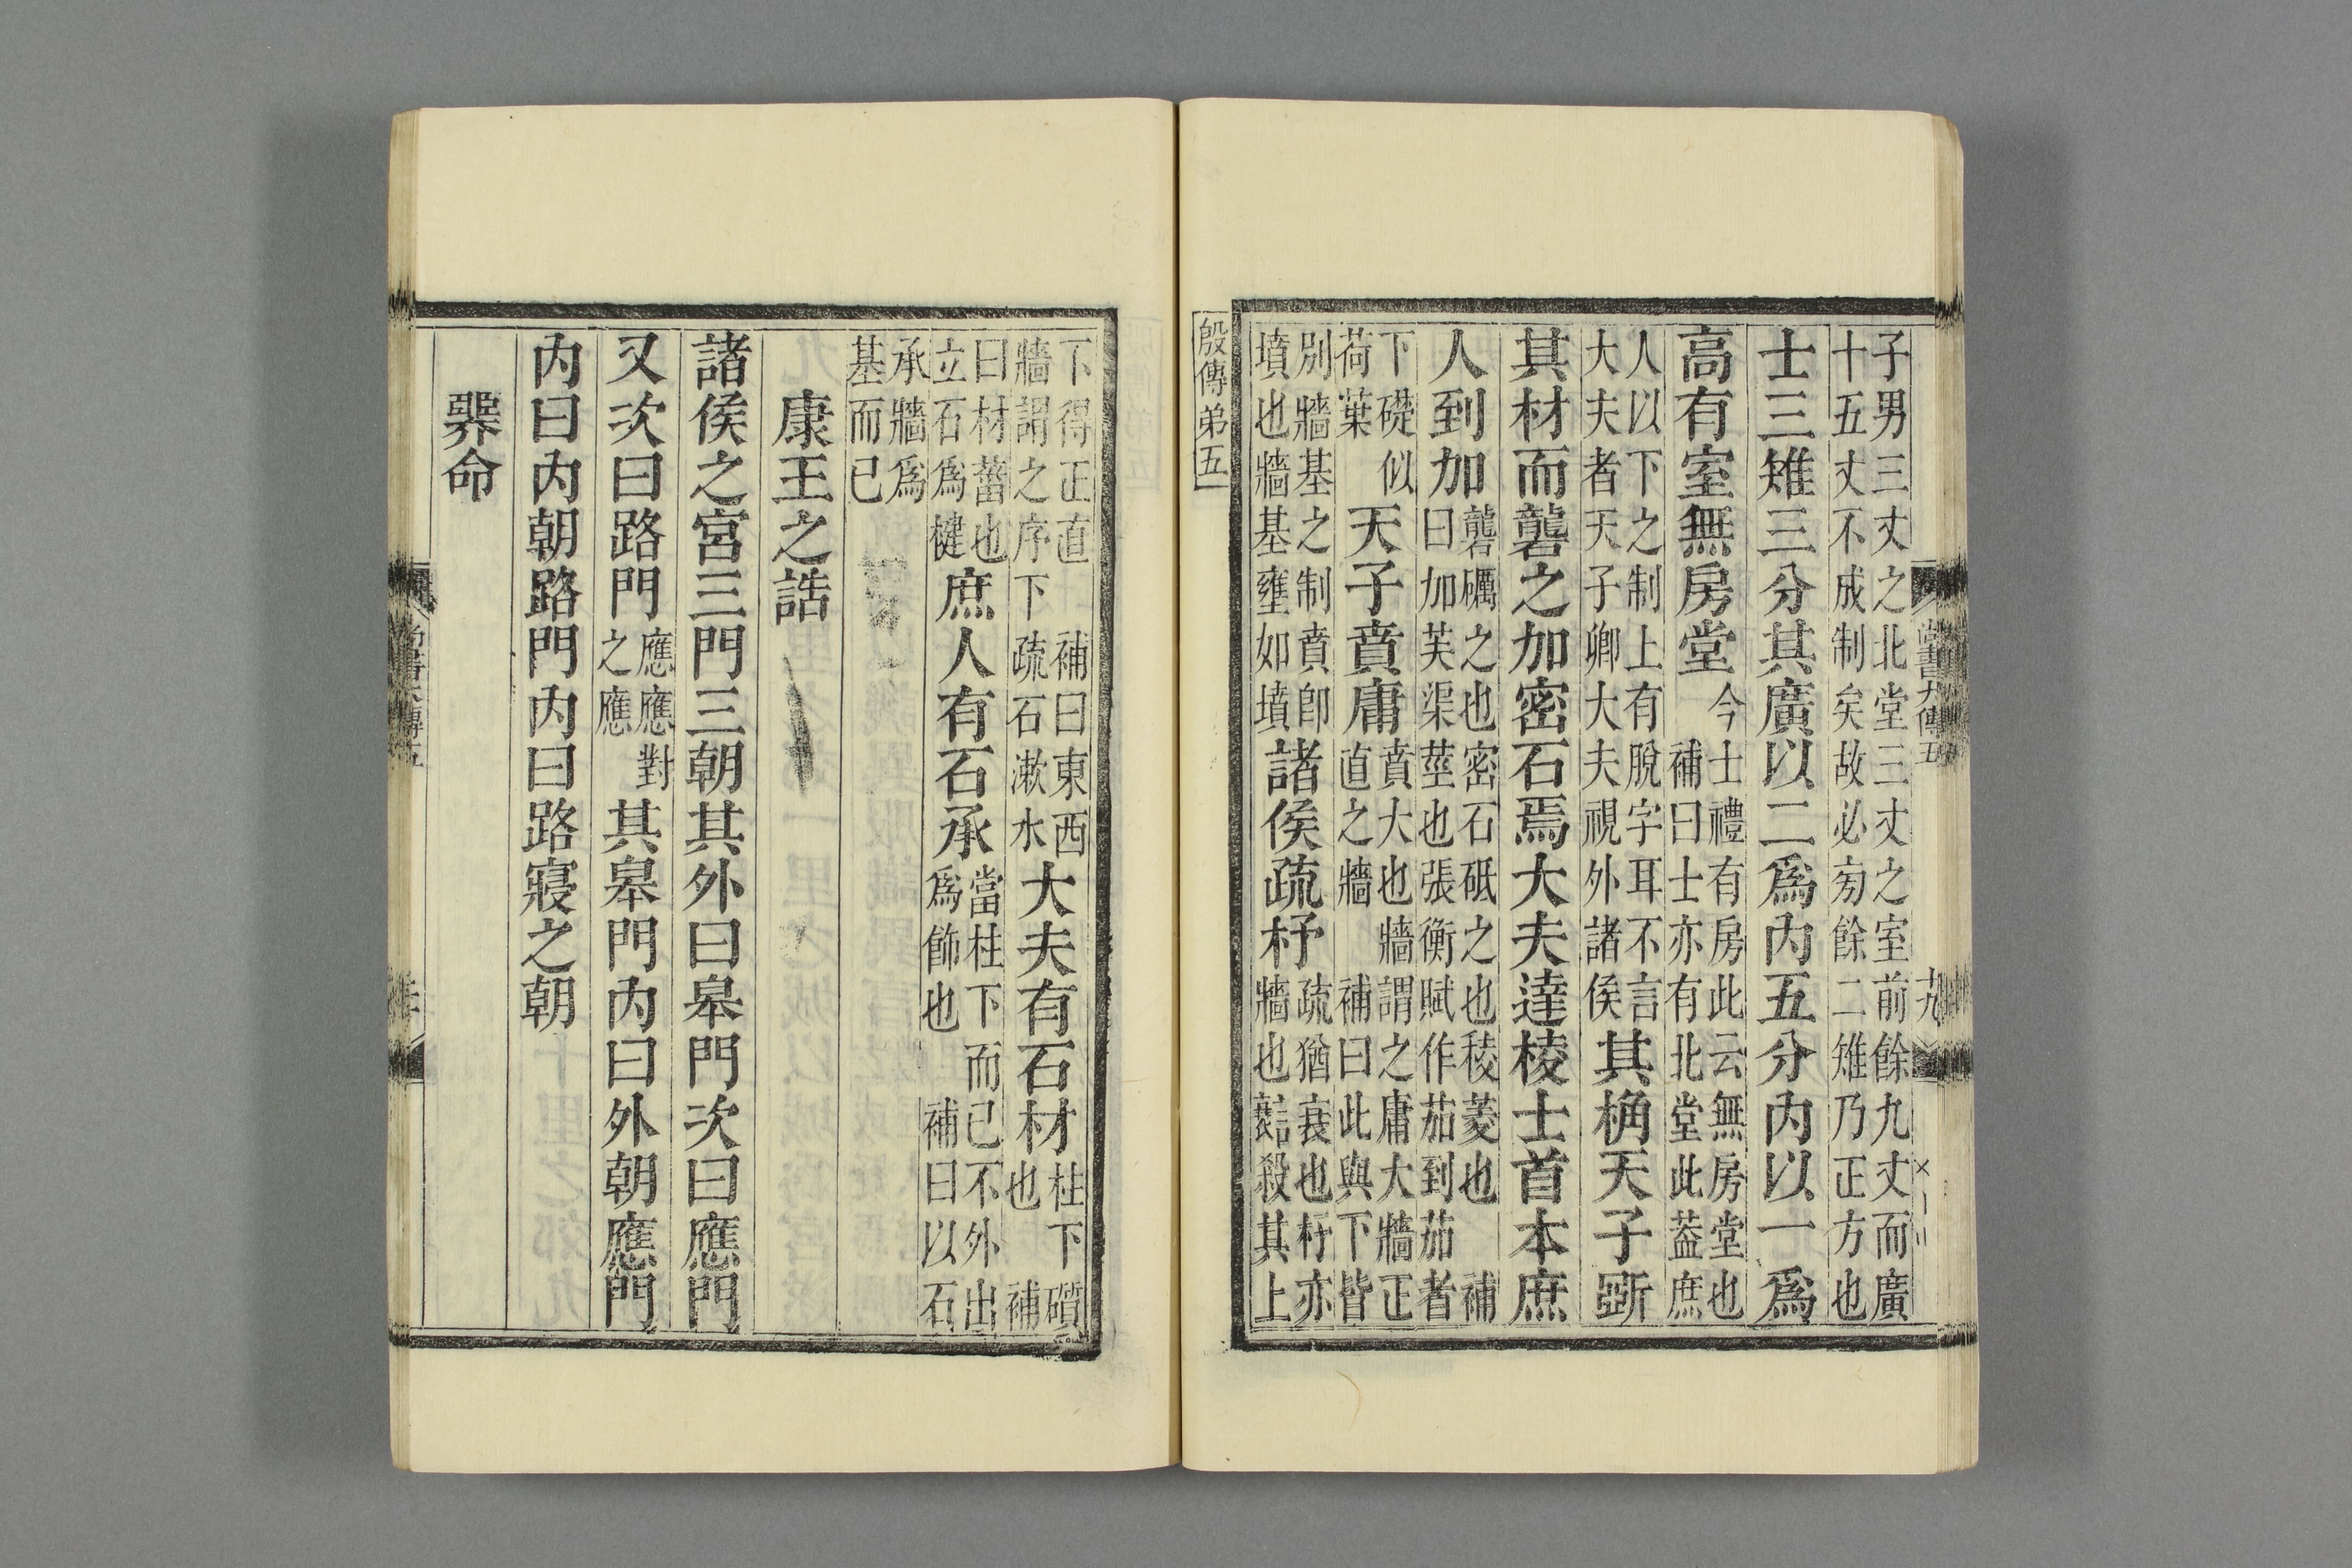 子男三丈之北堂三丈之室前餘九丈而廣
十五丈不成制矣故必㫄餘二雉乃正方也
士三雉三分其廣以二爲內五分內以一爲
高有室無房堂
今士禮有房此云無房堂也
補曰士亦有北堂此葢庶
人以下之制上有脫字耳不言
大夫者天子卿大夫視外諸侯
其桷天子斲
其材而礱之加密石焉大夫達棱士首本庶
人到加
礱礪之也密石砥之也稜菱也補
曰加芙渠莖也張衡賦作茄到茄者
下礎似
荷葉
天子賁庸
賁大也牆謂之庸大牆正
直之牆補曰此與下皆
別牆基之制賁卽
墳也牆基壅如墳
諸侯疏杼
疏猶衰也杼亦
牆也言殺其上
殷傳弟五
尙書大傳五
十九
下得正直補曰東西
牆謂之序下疏石漱水
大夫有石材
柱下礩
也補
曰材蓄也
立石爲楗
庶人有石承
當柱下而已不外出
爲飾也補曰以石
承牆爲
基而已
康王之誥
諸侯之宮三門三朝其外曰皋門次曰應門
又次曰路門
應應對
之應
其皋門內曰外朝應門
內曰內朝路門內曰路寢之朝
𢍰命